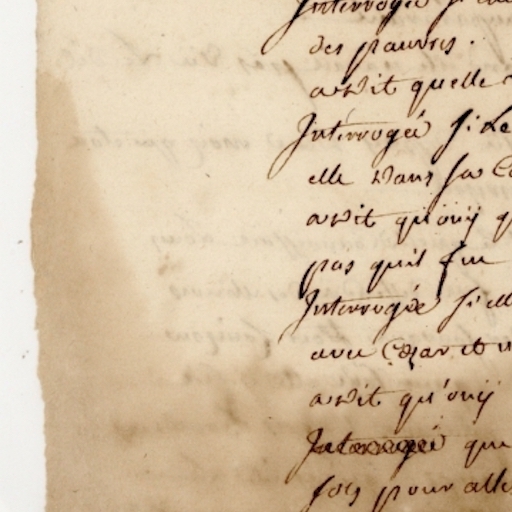 Interrogée si
des pauvres.
a dit quelle
Interrogée si Le
elle dans sa
a dit qu'ouÿ q
pas quil fu
Interrogée si ell
avec Cezar et
a dit qu'ouÿ
Interrogée que
fois pour alle